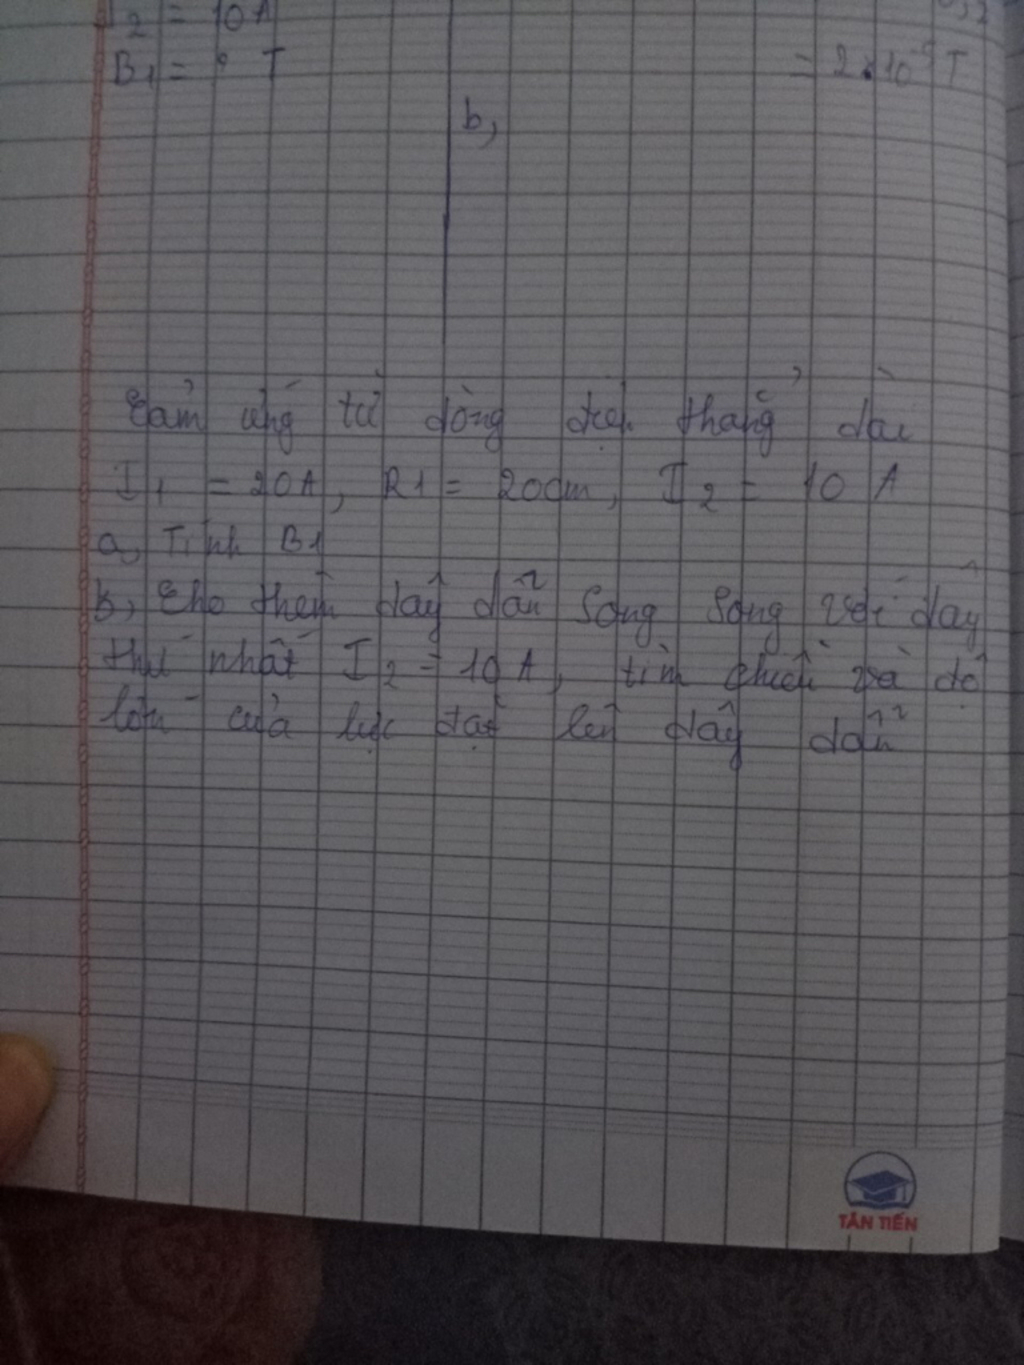 I2 = 10 A
B1 = ? T
= 2.10⁻⁵ T
b,
Cảm ứng từ dòng điện thẳng dài
I1 = 20A, R1 = 20cm, I2 = 10 A
a, Tính B1
b, Cho thêm dây dẫn song song với dây
thứ nhất I2 = 10A, tìm chiều và độ
lớn của lực đặt lên dây dẫn
TÂN TIẾN